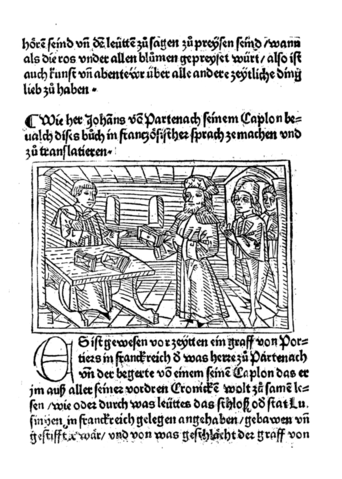 hörē seind vn̄ dē leüttē zůsagen zů preysen seind / wann
als die ros vnder allen blůmen gepreyset würt / also ist
auch kunst vn̄ abenteẅr über alle andere zeytliche ding
lieb zů haben ·
¶ Wie her Johāns vō Partenach seinem Caplon be-
ualch dises bůch in frantzösischer sprach ze machen vnd
zů translatieren ·
ES ist gewesen vor zeytten ein graff von Por-
tiers in franckreich ď was herre zů Partenach
vn̄ der begerte vō einem seinē Caplon das er
im auß aller seiner vordren Cronickē wolt zů samē le-
sen / wie oder durch was leüttes das schloß oď stat Lu-
sinien in franckreich gelegen angehaben / gebawen vn̄
gestifftꝫ wår / vnd von was geschlächt der graff von